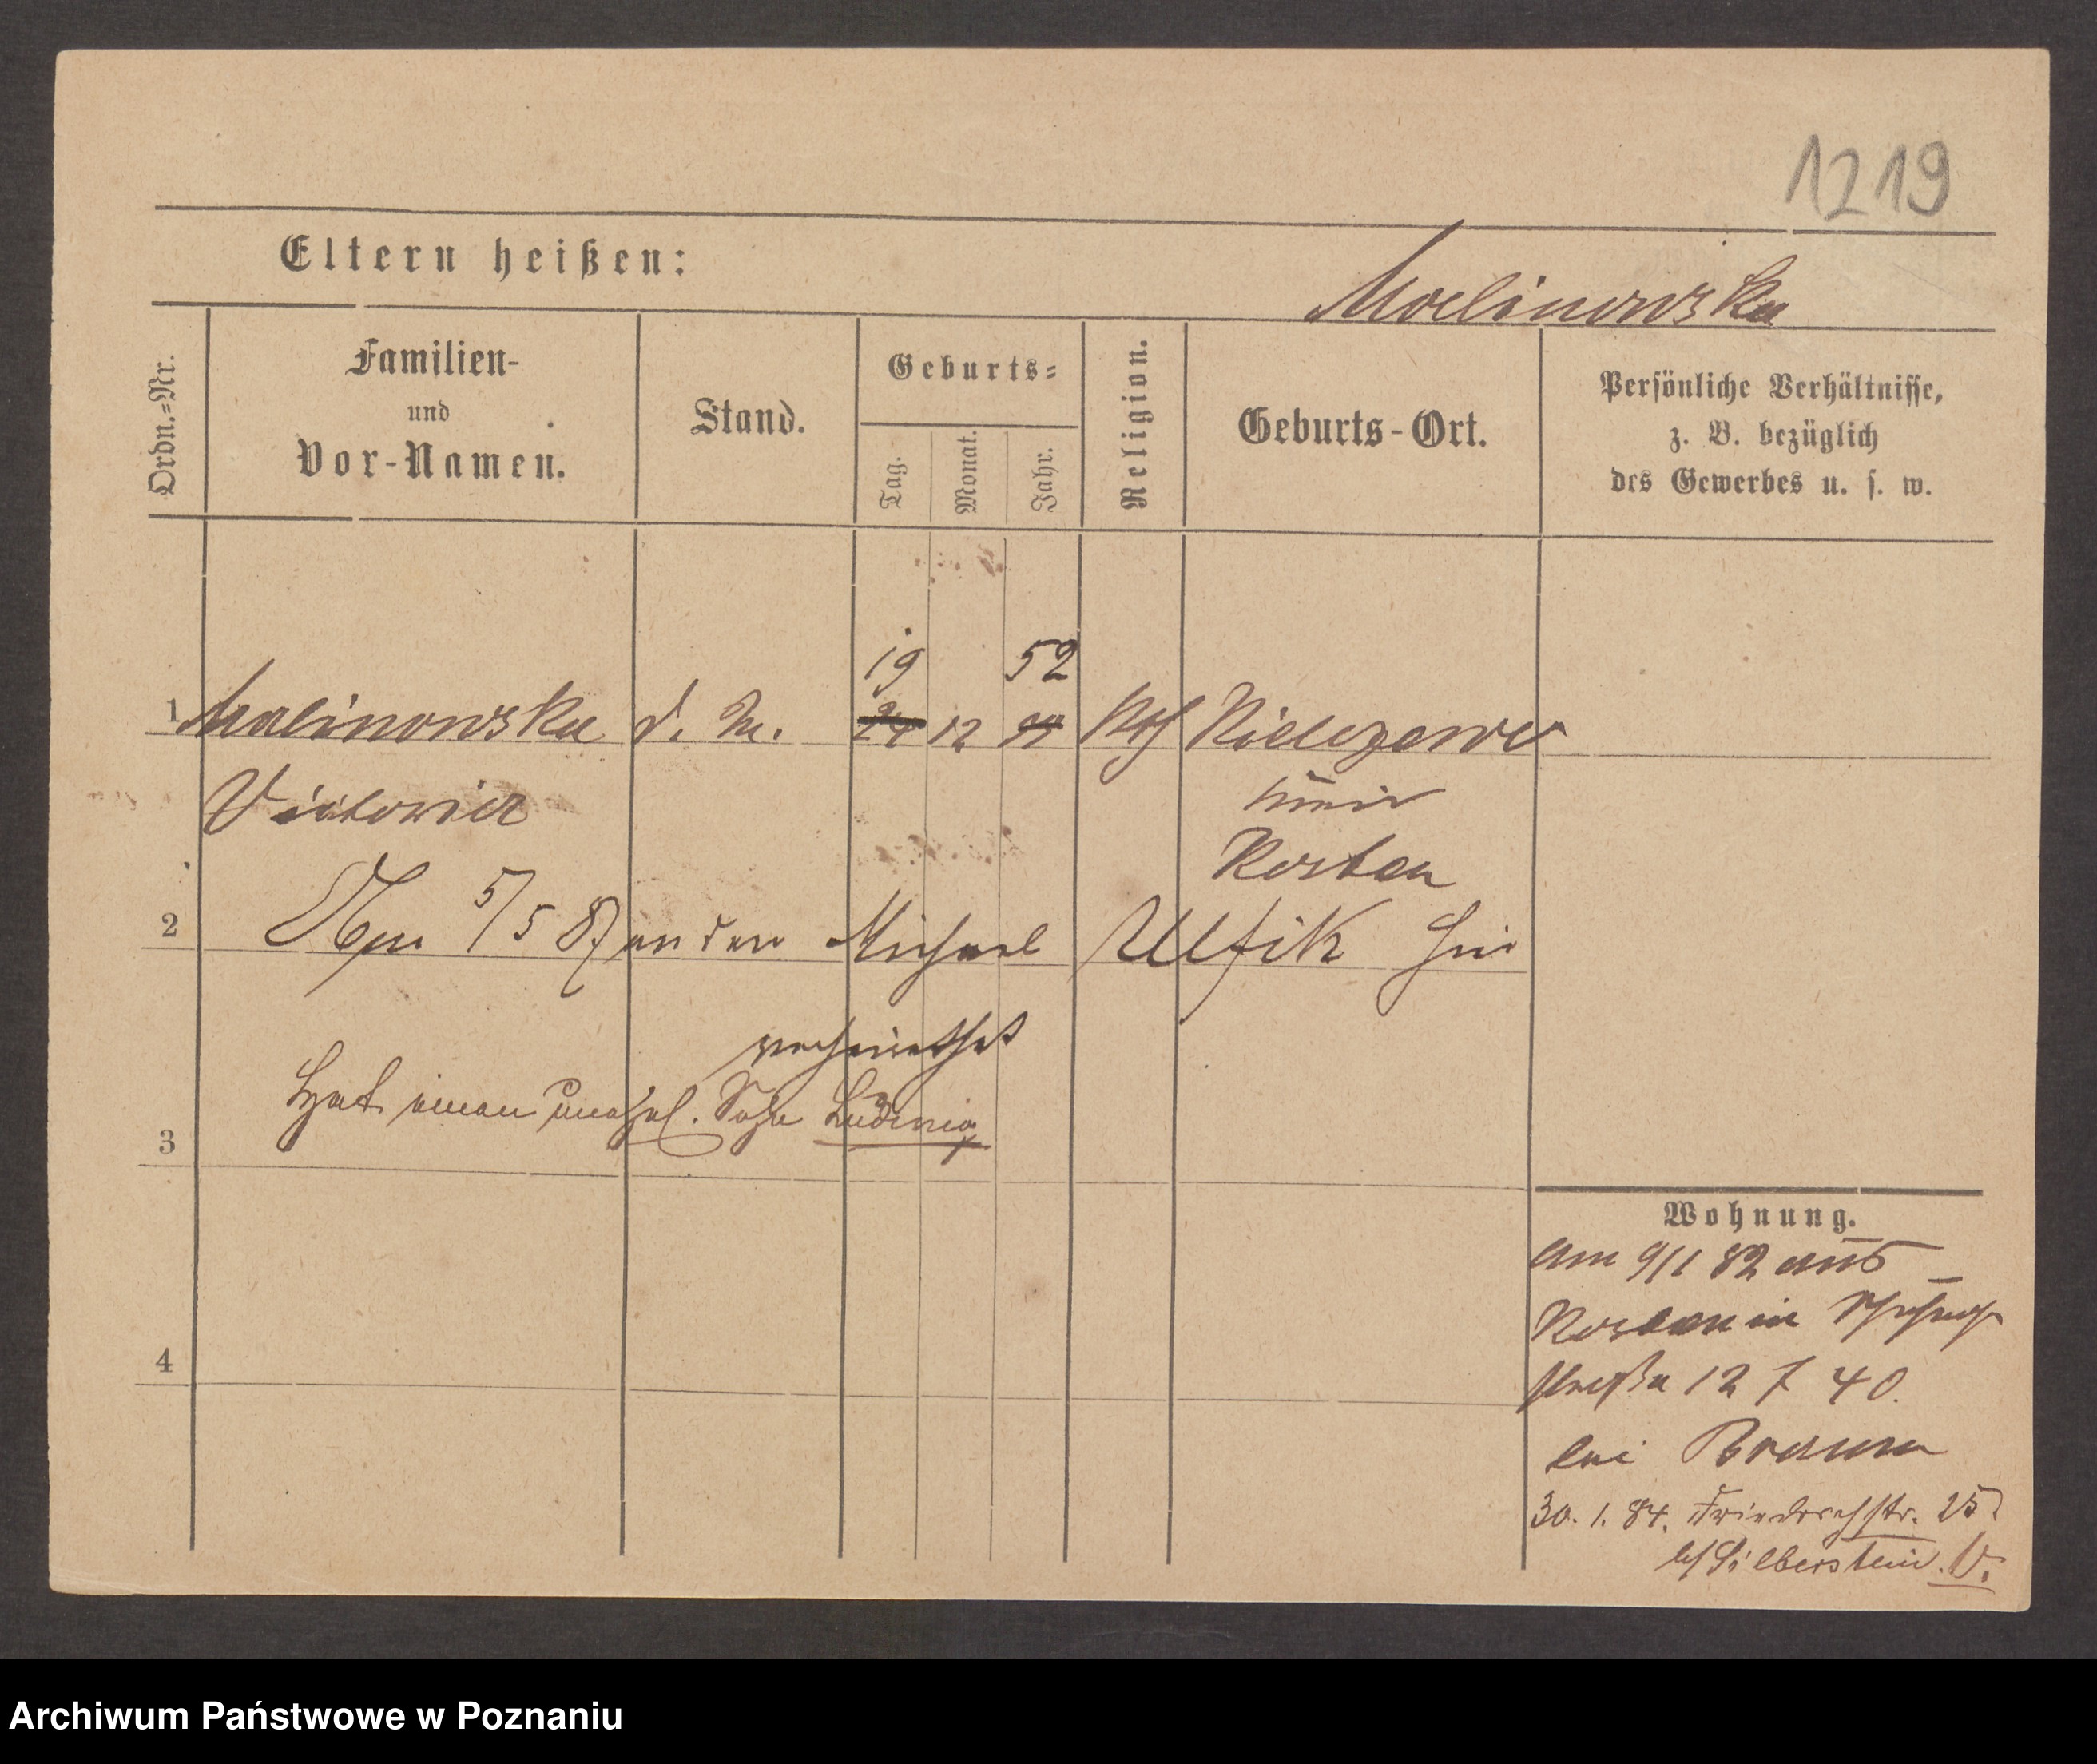 1219
Eltern heißen:
Malinowska
Ordn.=Nr.
Familien-
und
Vor-Namen.
Stand.
Geburts=
Tag.
Monat.
Jahr.
Religion.
Geburts-Ort.
Persönliche Verhältnisse,
z. B. bezüglich
des Gewerbes u. s. w.
19 52
1 Malinowska d. M. 24 12 Kth Kielczewo
Victoria
Kosten
2 5/5 87 an den Michael Ulfik hier
verheirathet
Hat einen unehel. Sohn Ludwig
3
4
Wohnung.
Am 9/1 82 aus
Kosten in
straße 12 40.
bei Braun
30. 1. 84. Friedrichstr. 25
b/ Silberstein. V.
Archiwum Państwowe w Poznaniu